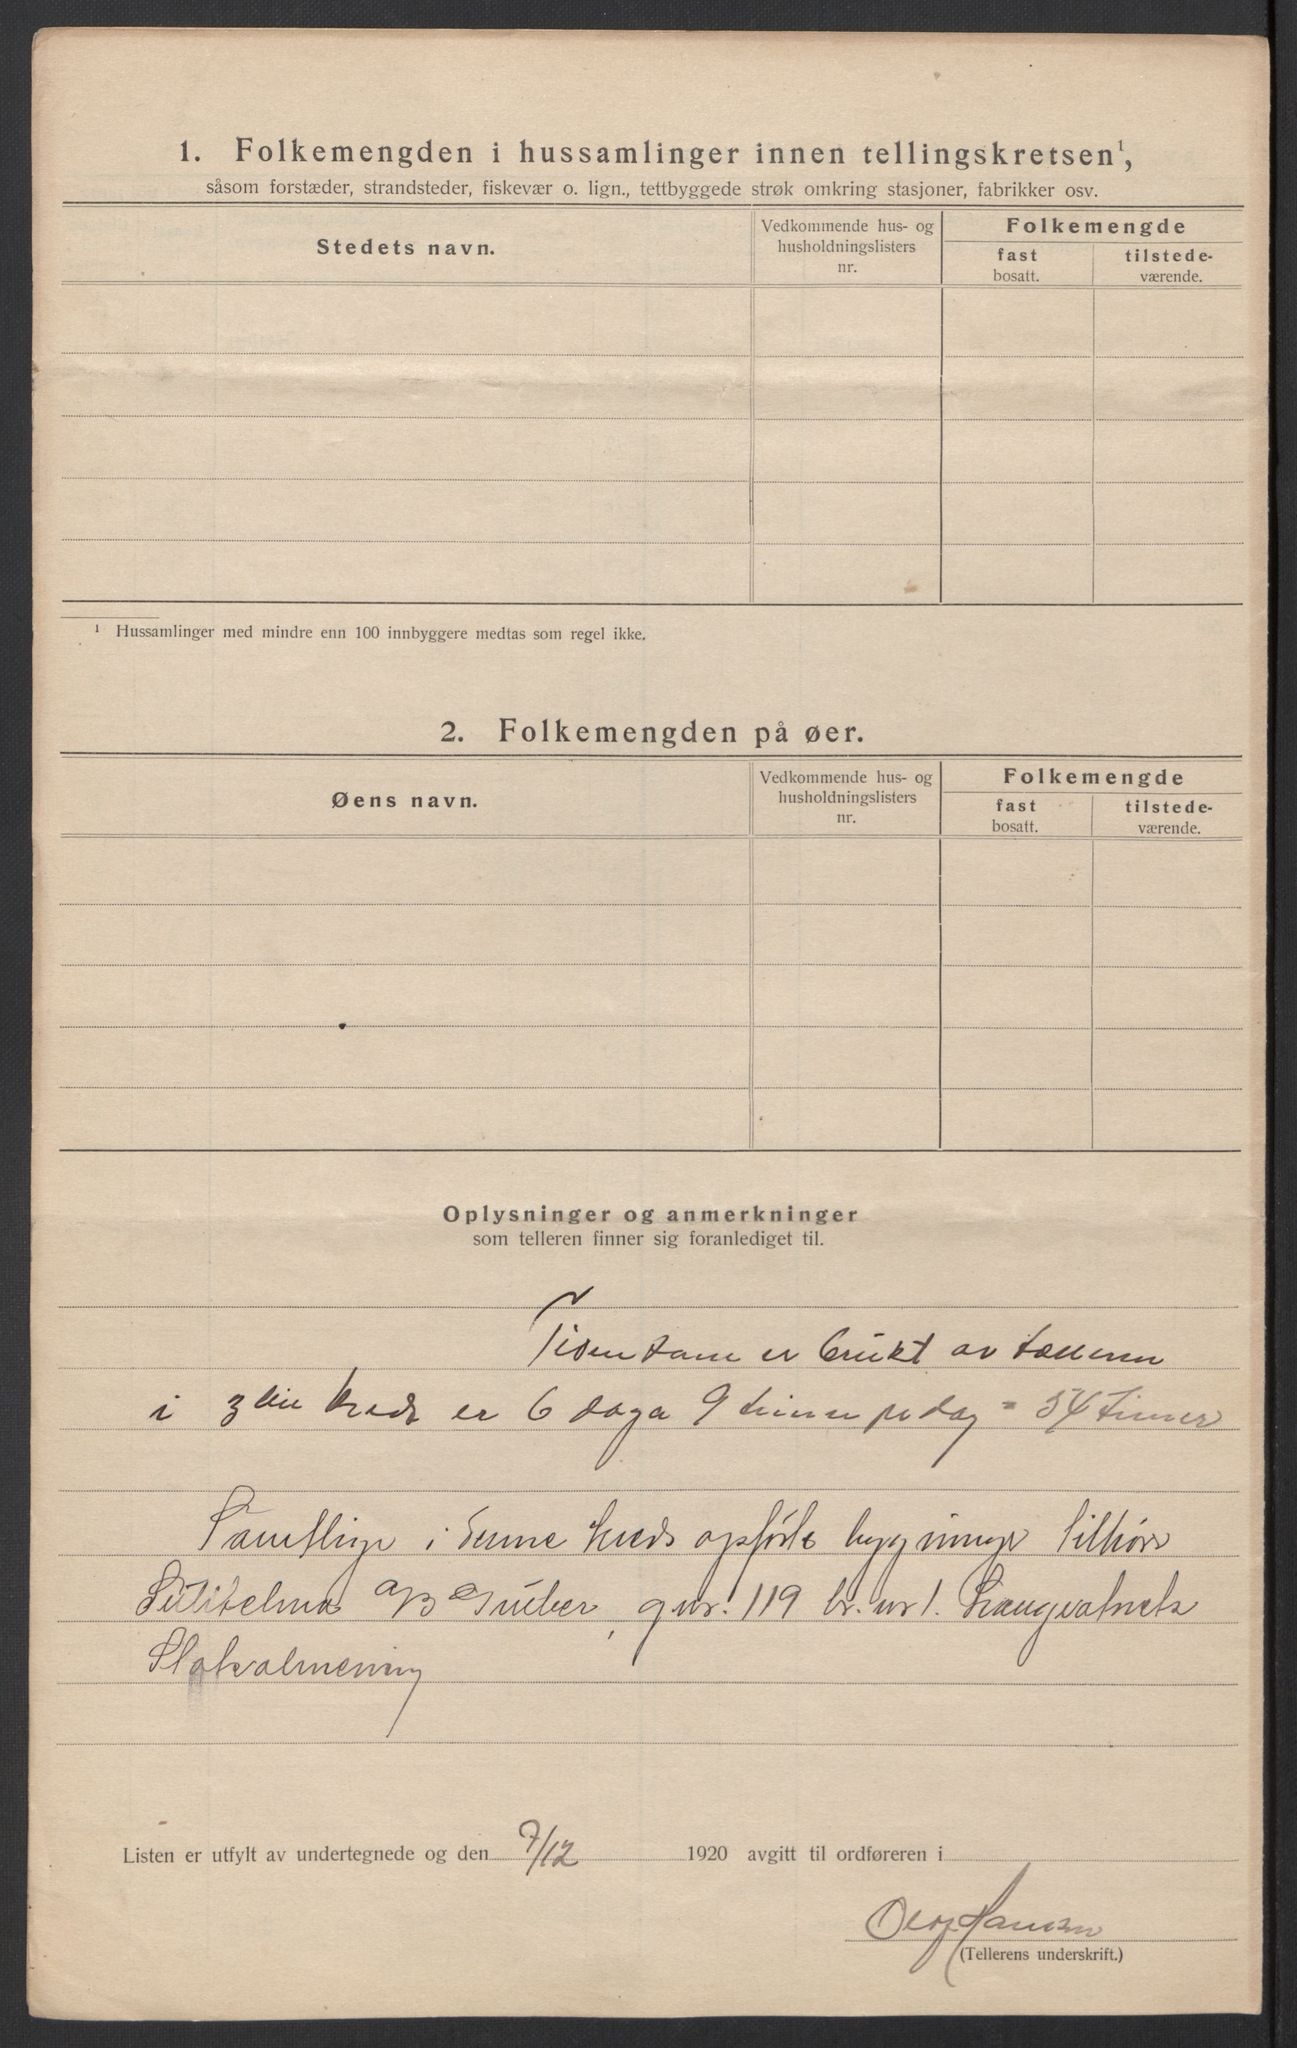 1. Folkemengden i hussamlinger innen tellingskretsen¹,
såsom forstæder, strandsteder, fiskevær o. lign., tettbyggede strøk omkring stasjoner, fabrikker osv.
Stedets navn.
Vedkommende hus- og
husholdningslisters
nr.
Folkemengde
fast
bosatt.
tilstede-
værende.
¹ Hussamlinger med mindre enn 100 innbyggere medtas som regel ikke.
2. Folkemengden på øer.
Øens navn.
Vedkommende hus- og
husholdningslisters
nr.
Folkemengde
fast
bosatt.
tilstede-
værende.
Oplysninger og anmerkninger
som telleren finner sig foranlediget til.
Tiden som er brukt av tælleren
i 3die kreds er 6 daga 9 timer pr dag = 54 timer
Samtlige i denne kreds opførte bygninger tilhøre
Sulitelma A/B Gruber, gnr. 119 br. nr 1. Langvatnets
Statsalmenning
Listen er utfylt av undertegnede og den 7/12 1920 avgitt til ordføreren i
Hansen
(Tellerens underskrift.)